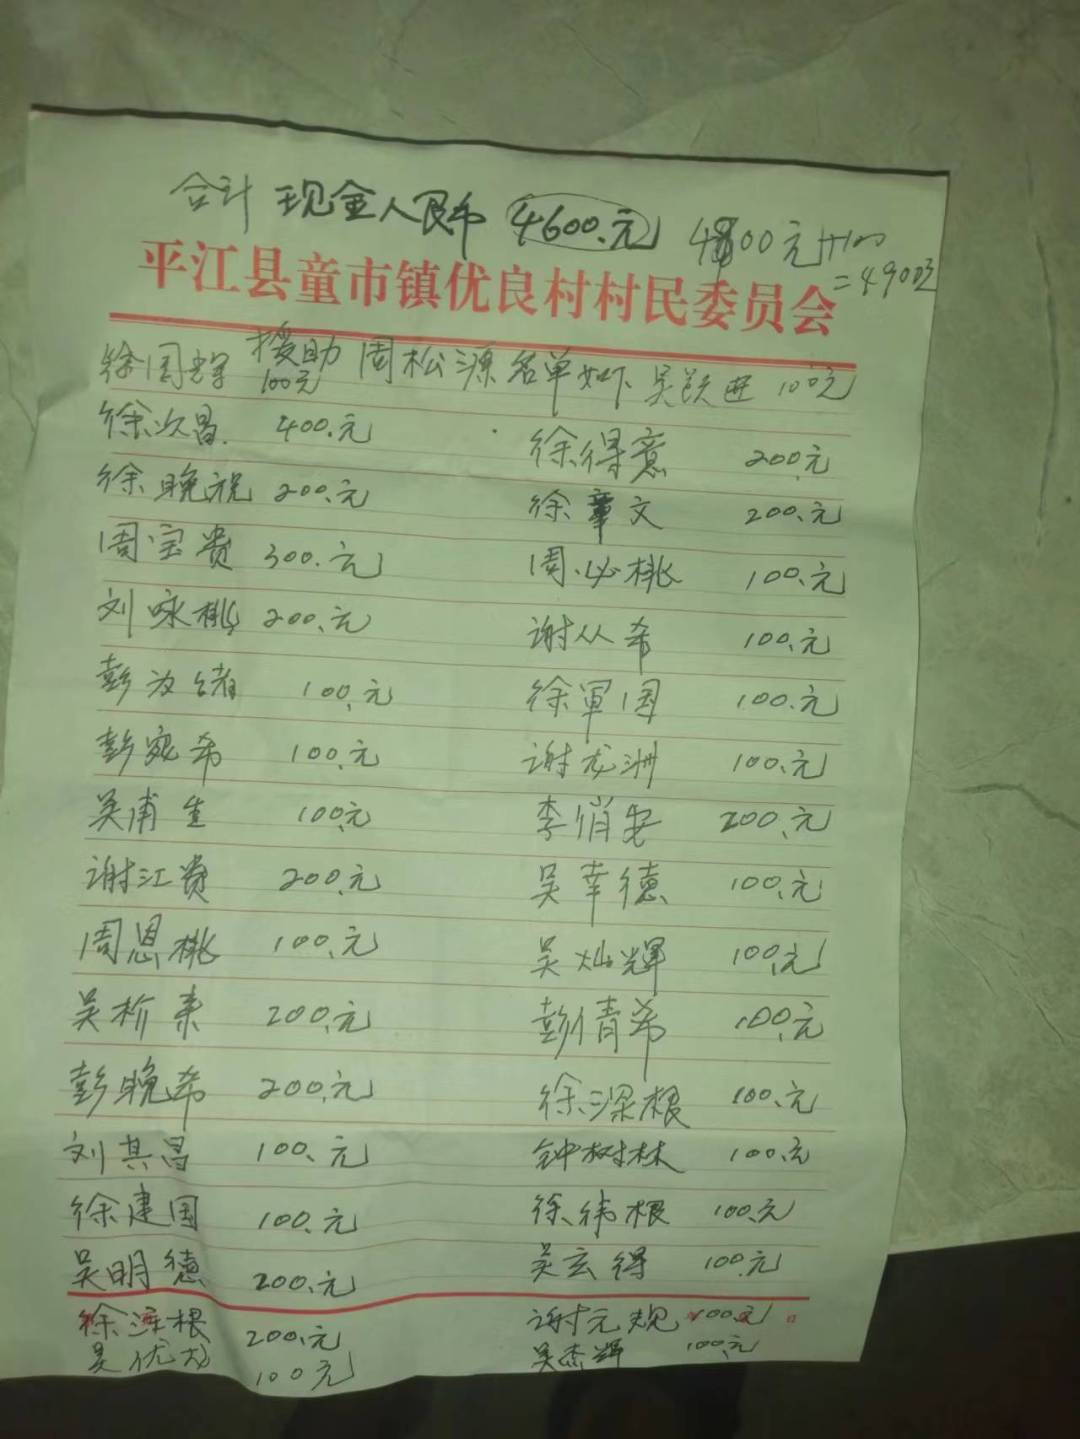 合计 现金人民币 4600.元 4800元+100
=4900元
平江县童市镇优良村村民委员会
援助 周松源名单如下 吴跃进 100元
徐周辉 100元
徐次昌 400.元 徐得意 200.元
徐晚祝 200.元 徐章文 200.元
周宝贵 300.元 周必桃 100.元
刘咏桃 200.元 谢从希 100.元
彭为绪 100.元 徐軍国 100.元
彭宛希 100.元 谢龙洲 100.元
吴甫生 100.元 李俏安 200.元
谢江贵 200.元 吴幸德 100.元
周恩桃 100.元 吴灿輝 100.元
吴桥来 200.元 彭倩希 100.元
彭晚希 200.元 徐深根 100.元
刘其昌 100.元 钟树林 100.元
徐建国 100.元 徐伟根 100.元
吴明德 200.元 吴玄得 100.元
徐 根 200.元 谢元规 100元
吴优龙 100元 吴杰輝 100.元